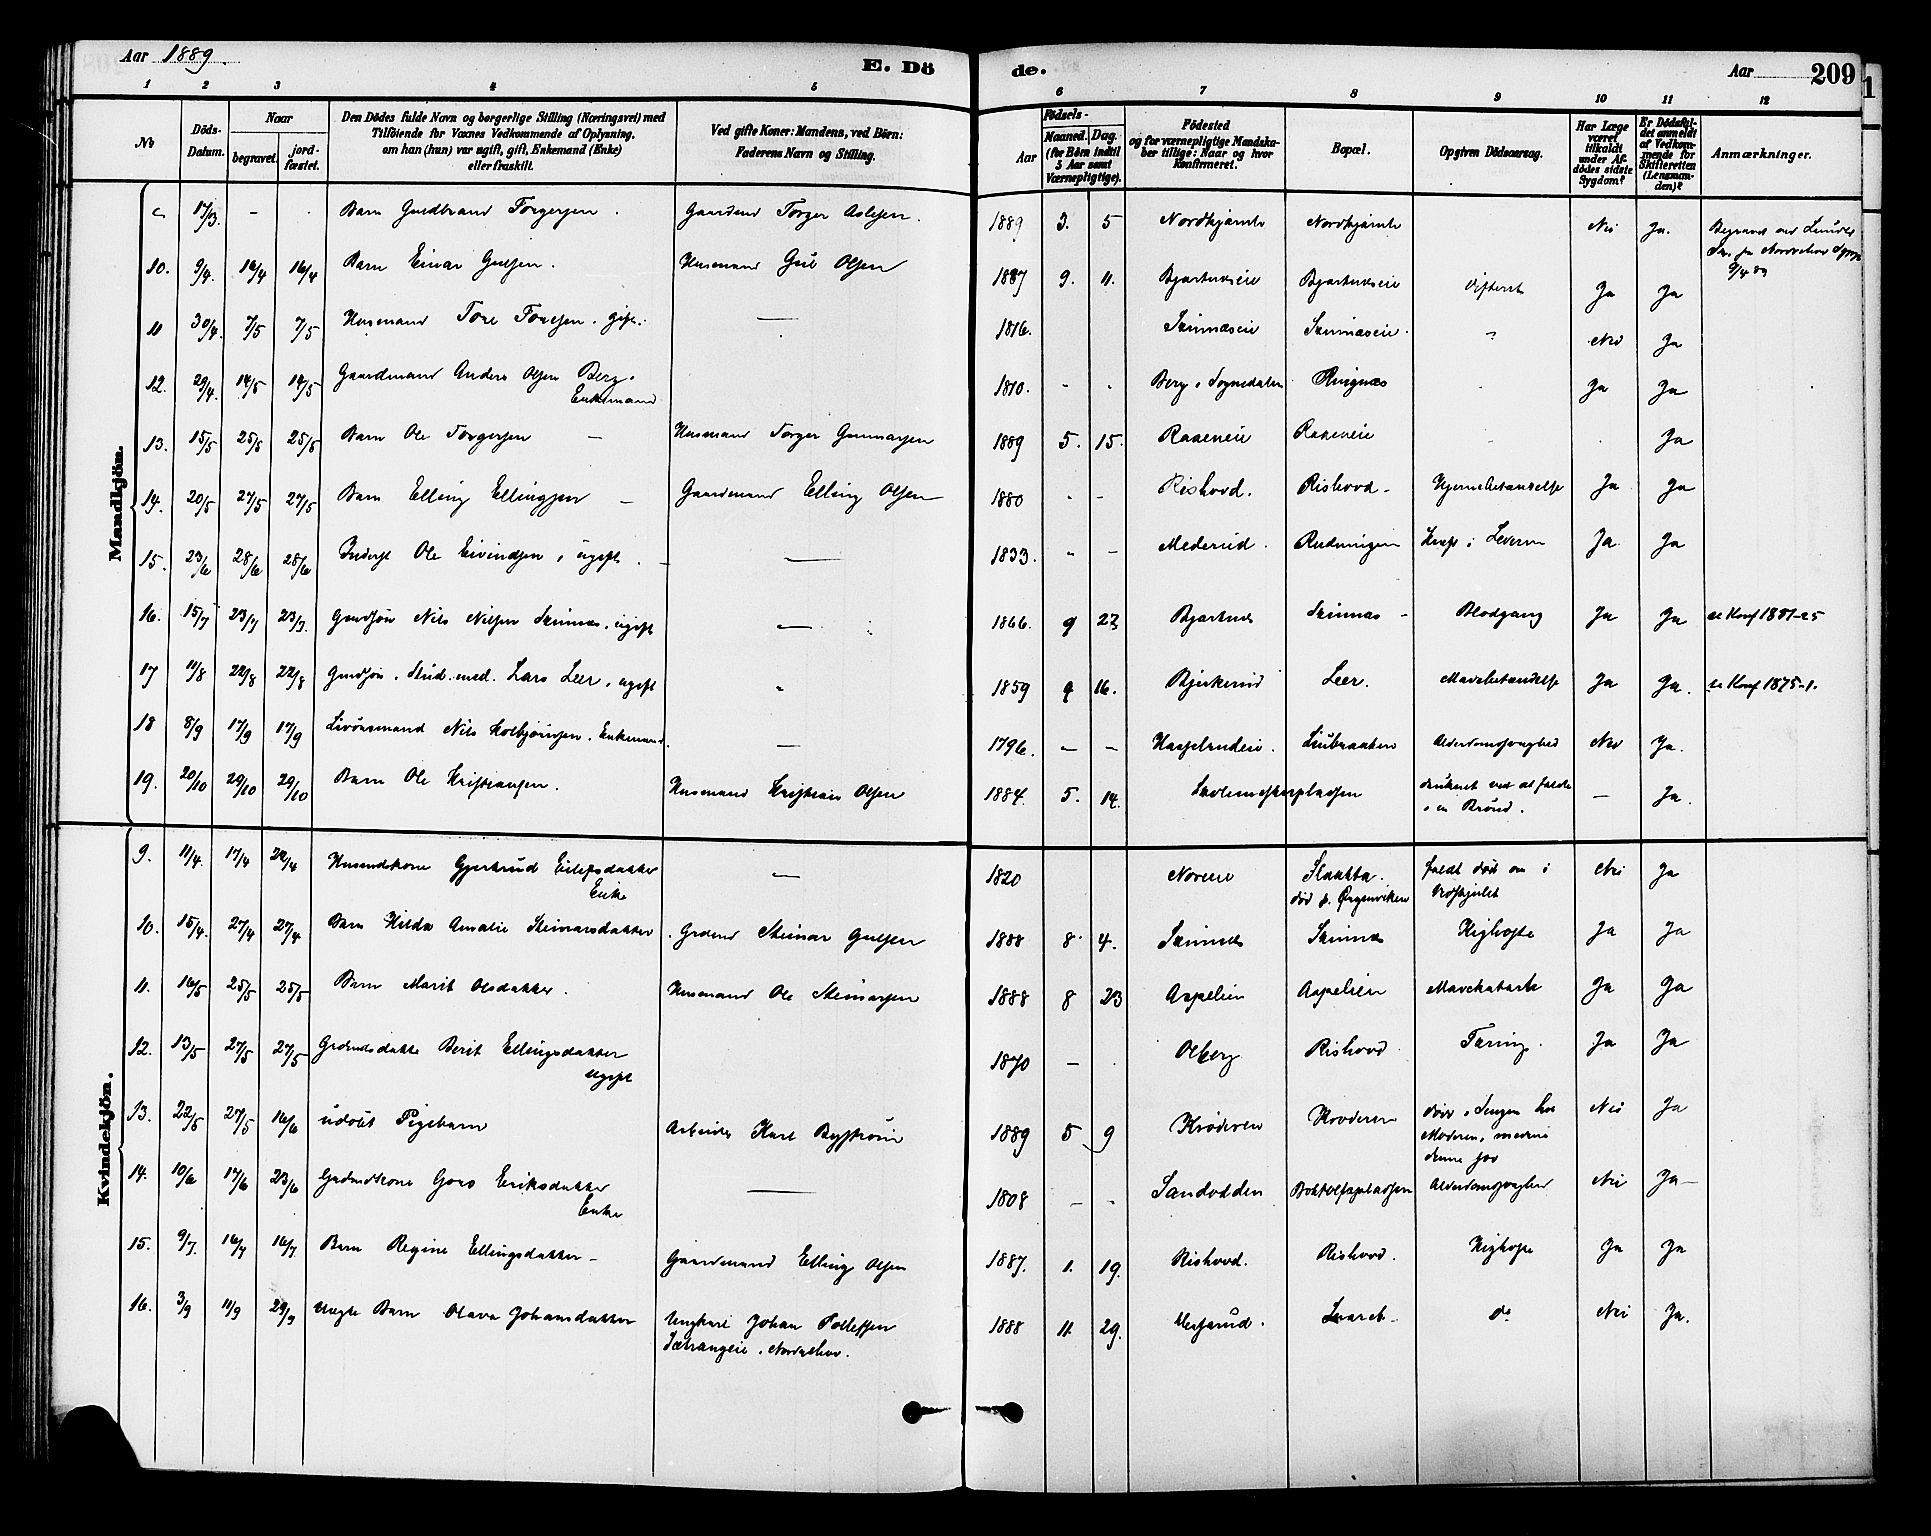 Aar 1889.
E. Döde.
Aar 209
1 2 3 4 5 6 7 8 9 10 11 12
No
Döds-Datum.
Naar
begravet.
jord-fæstet.
Den Dödes fulde Navn og borgerlige Stilling (Næringsvei) med
Tilföiende for Voxnes Vedkommende af Oplysning,
om han (hun) var ugift, gift, Enkemand (Enke)
eller fraskilt.
Ved gifte Koner: Mandens, ved Börn:
Faderens Navn og Stilling.
Födsels-
Aar
Maaned. Dag.
(for Börn indtil
5 Aar samt
Værnepligtige).
Födested
og for værnepligtige Mandska-
ber tillige: Naar og hvor
Konfirmeret.
Bopæl.
Opgiven Dödsaarsag.
Har Læge
været
tilkaldt
under Af-
dödes sidste
Sygdom?
Er Dödsfal-
det anmeldt
af Vedkom-
mende for
Skifteretten
(Lensman-
den)?
Anmærkninger.
Mandkjön.
17/3. - . Barn Gudbrand Torgersen. Gaardmd Torger Aslesen. 1889 3. 5 Nordhjømte Nordhjømte Nei Ja.
10. 9/4. 16/4 16/4 Barn Einar Gulsen. Husmand Gul Olsen 1887 9. 11. Bjartneseie Bjartneseie Difterit Ja Ja 9/4 89
11 30/4. 7/5 7/5 Husmand Tore Toresen. gift. — 1816. Skinnæseie Skinnæseie. " Nei Ja
12. 29/4. 14/5 14/5 Gaardmand Anders Olsen Berg. 1810. - . Berg i Sognedalen Ringnæs Ja Ja
Enkemand
13. 15/5 25/5 25/5 Barn Ole Torgersen — Husmand Torger Gunnarsen 1889 5. 15. Raaeneie Raaeneie Ja
14. 20/5 27/5 27/5 Barn Elling Ellingsen — Gaardmand Elling Olsen 1880 - - Rishovd. Rishovd - Hjernebetændelse Ja Ja
15. 23/6 28/6 28/6 Inderst Ole Eivindsen, ugift. — 1833. - - Mederud. Rudningen Kræft i Leveren Ja Ja
16. 15/7 23/7 23/7. Grdsøn Nils Nilsen Skinnes, ugift — 1866. 9 22 Bjartnes Skinnæs - Blodgang Ja Ja se Konf 1881-25
17 11/8 22/8 22/8 Grdsøn. Stud. med. Lars Leer, ugift " 1859 9 16. Bjerkerud Leer. Mavebetændelse Ja Ja. se Konf 1875-1.
18 8/9 17/9 17/9 Livøresmand Nils Kolbjørnsen. Enkemand. — 1796. — — Linbraaten Alderdomssvaghed Nei Ja.
19. 20/10 29/10 29/10 Barn Ole Kristiansen. Husmand Kristian Olsen 1884. 5. 14. Skolemesterpladsen druknet ved at falde — Ja.
i en Brønd.
Kvindekjön.
9. 11/4. 17/4 22/4 Husmdskone Gjertrud Eilefsdatter — 1820 Noreeie Slaatta. faldt død om i Nei Ja
Enke død p. Ørgenviken Vedskjulet
10. 15/4. 27/4 27/4 Barn Hilda Amalie Steinarsdatter. Grdmd Steinar Gulsen 1888 8. 4. Skinnes Skinnes Kighoste Ja Ja
11. 16/5 25/5 25/5 Barn Marit Olsdatter. Husmand Ole Steinarsen 1888 8 23 Aspelien Aspelien Mavekatarh Ja Ja
12. 13/5 27/5 27/5 Grdmdsdatter Berit Ellingsdatter 1870 — . Olberg Rishovd Tæring. Ja Ja
ugift
13. 22/5 27/5 16/6 udøbt Pigebarn Arbeider Karl Byström 1889 5 9 Krøderen Krøderen døde i Sengen hos Nei Ja
Moderen, medens
denne sov
14. 10/6 17/6 23/6 Grdmdskone Goro Eriksdatter — 1808 — - Sandodden Alderdomssvaghed Nei Ja —
Enke
15. 9/7. 16/7 16/7. Barn Regine Ellingsdatter — Gaardmand Elling Olsen 1887. 1. 19. Rishovd. Rishovd. Kighoste Ja Ja
16. 3/9 11/9 29/9 Uægte Barn Olava Johansdatter Ungkarl Johan Pollefsen 1888 11. 29. do Nei Ja.